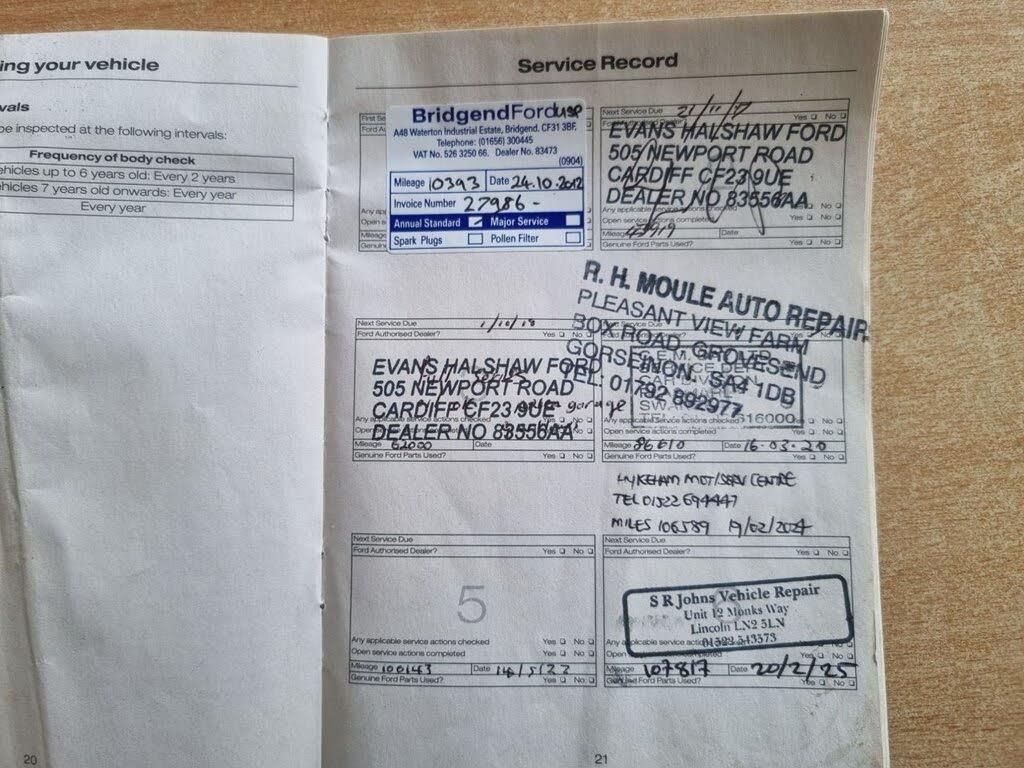 ing your vehicle
vals
be inspected at the following intervals:
Frequency of body check
ehicles up to 6 years old: Every 2 years
hicles 7 years old onwards: Every year
Every year
20
Service Record
First Se
Ford A
Any app
Open s
Mileag
Genuin
BridgendFord
A48 Waterton Industrial Estate, Bridgend. CF31 3BF.
Telephone: (01656) 300445
VAT No. 526 3250 66. Dealer No. 83473
(0904)
Mileage 10393 Date 24.10.2012
Invoice Number 27986 -
Annual Standard Major Service
Spark Plugs Pollen Filter
Next Service Due 21/11/17
Yes No
EVANS HALSHAW FORD
505 NEWPORT ROAD
CARDIFF CF23 9UE
DEALER NO 83556AA
Any applicable service actions checked Yes No
Open service actions completed Yes No
Mileage Date
Genuine Ford Parts Used? Yes No
Next Service Due 1/10/18
Ford Authorised Dealer? Yes No
EVANS HALSHAW FORD
505 NEWPORT ROAD
CARDIFF CF23 9UE
DEALER NO 83556AA
garage
Mileage 62000 Date
Genuine Ford Parts Used? Yes No
R. H. MOULE AUTO REPAIR
PLEASANT VIEW FARM
BOX ROAD, GROVESEND
GORSEINON. SA4 1DB
TEL: 01792 892977
616000
Any applicable service actions checked Yes No
Open service actions completed Yes No
Mileage 86610 Date 16-03-20
Genuine Ford Parts Used? Yes No
HYKEHAM MOT/SERV CENTRE
TEL 01522 694447
MILES 106589 19/02/2024
Next Service Due
Ford Authorised Dealer? Yes No
5
Any applicable service actions checked Yes No
Open service actions completed Yes No
Mileage 100143 Date 14/5/22
Genuine Ford Parts Used? Yes No
Next Service Due
Ford Authorised Dealer? Yes No
S R Johns Vehicle Repair
Unit 12 Monks Way
Lincoln LN2 5LN
01522 543573
Any applicable service actions checked Yes No
Open service actions completed Yes No
Mileage 107817 Date 20/2/25
Genuine Ford Parts Used? Yes No
21